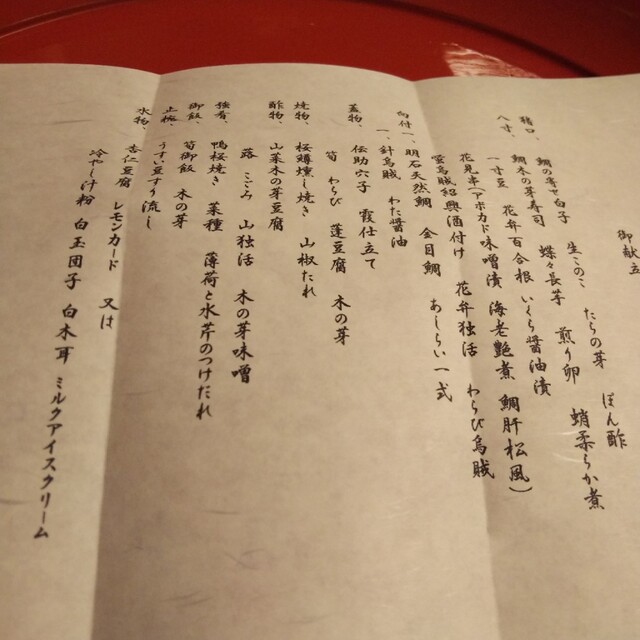 御献立
猪口、 鯛の子せ白子 たらの芽 ぽん酢
八寸、 生このこ 煎り卵 蛸柔らか煮
鯛木の芽寿司 蝶々長芋
一寸豆 花弁百合根 いくら醤油漬
花見串(アボカド味噌漬 海老艶煮 鯛肝松風)
蛍烏賊紹興酒付け 花弁独活 わらび烏賊
向付、 一、明石天然鯛 金目鯛 あしらい一式
一、針烏賊 わた醤油
蓋物、 伝助穴子 霞仕立て
筍 わらび 蓬豆腐 木の芽
焼物、 桜鱒燻し焼き 山椒たれ
酢物、 山菜木の芽豆腐
蕗 こごみ 山独活 木の芽味噌
強肴、 鴨桜焼き 菜種 薄荷と水芹のつけだれ
御飯、 筍御飯 木の芽
止椀、 うすい豆すり流し
水物、 杏仁豆腐 レモンカード 又は
冷やし汁粉 白玉団子 白木耳 ミルクアイスクリーム